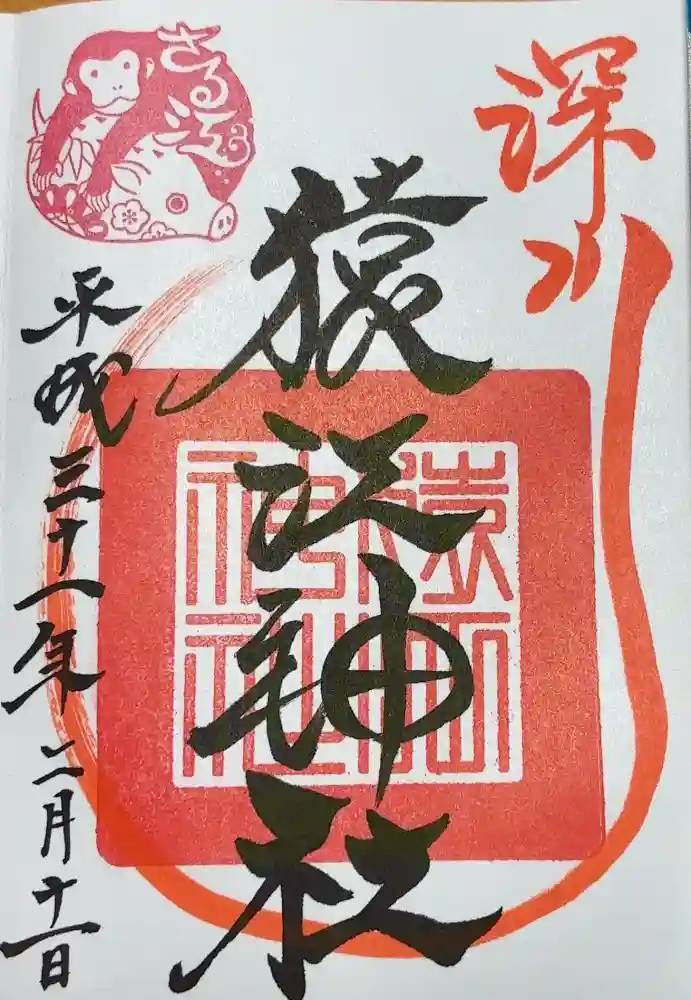 深川
猿江神社
猿江神社
平成三十一年二月十一日
さる江